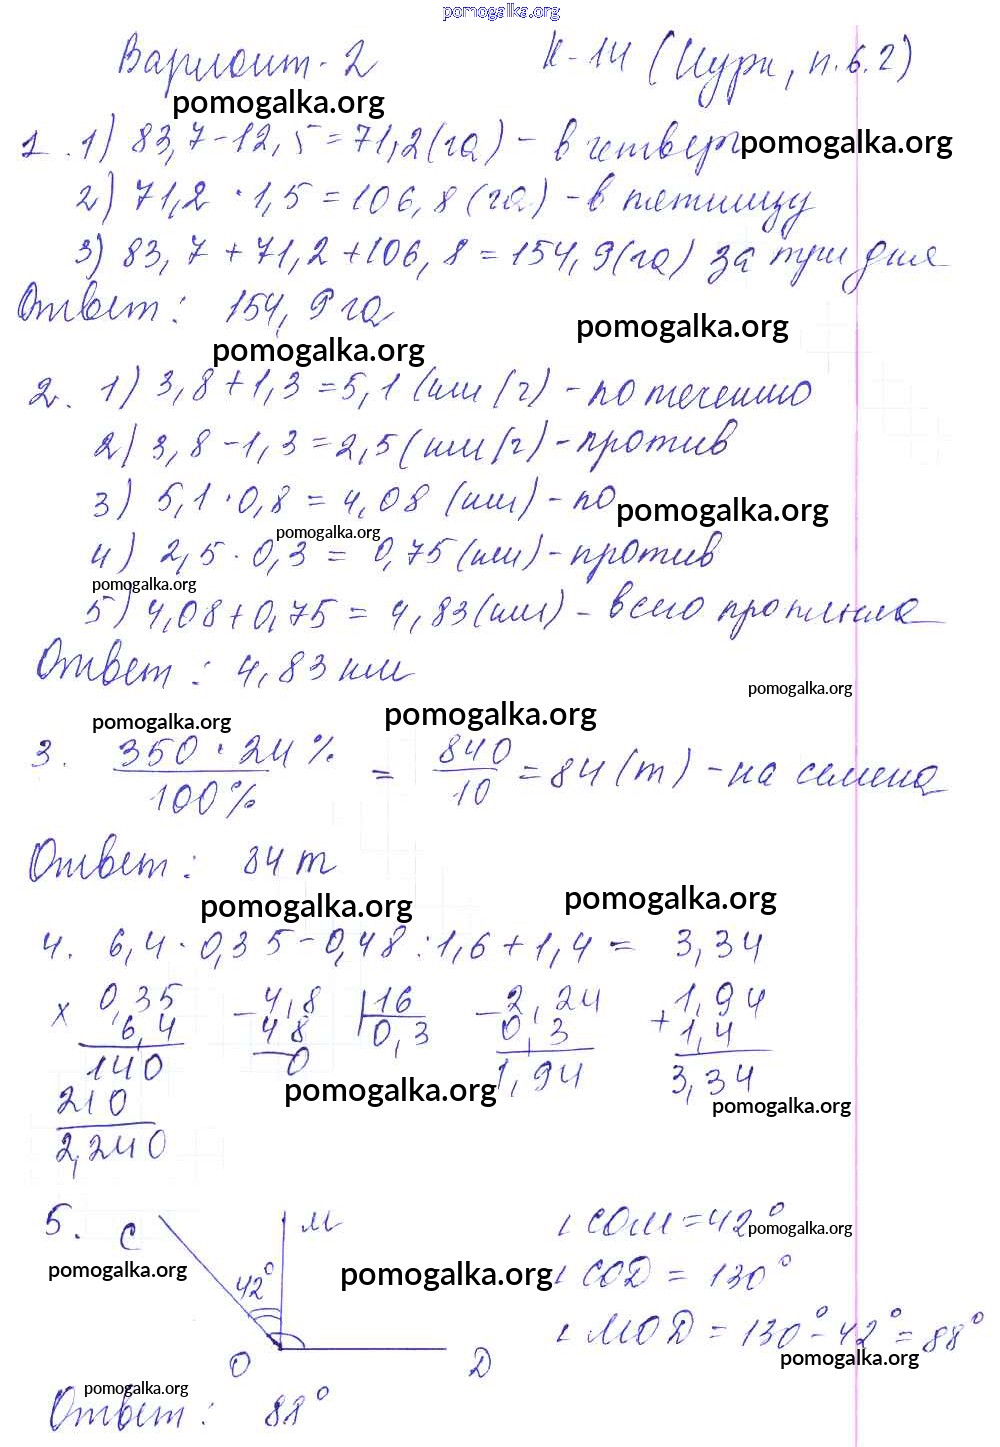 pomogalka.org
Вариант-2 К-14 (Чурк, п.6.2)
pomogalka.org
1. 1) 83,7-12,5=71,2(га) - в четверг pomogalka.org
2) 71,2 · 1,5 = 106,8 (га) - в пятницу
3) 83,7 + 71,2 + 106,8 = 154,9(га) за три дня
Ответ: 154,9 га
pomogalka.org
pomogalka.org
2. 1) 3,8+1,3=5,1 (км/ч) - по течению
2) 3,8-1,3=2,5(км/ч) - против
3) 5,1·0,8 = 4,08 (км) - по pomogalka.org
pomogalka.org
4) 2,5·0,3 = 0,75(км) - против
pomogalka.org
5) 4,08+0,75 = 4,83(км) - всего проплыла
Ответ: 4,83 км
pomogalka.org
pomogalka.org pomogalka.org
3. 350·24% / 100% = 840 / 10 = 84 (т) - на семена
Ответ: 84 т
pomogalka.org pomogalka.org
4. 6,4·0,35-0,48:1,6+1,4 = 3,34
× 0,35 - 4,8 | 16 - 2,24 + 1,94
6,4 48 0,3 0,3 1,4
140 0 1,94 3,34
pomogalka.org pomogalka.org
210
2,240
5. C M ∠COM=42°
pomogalka.org
pomogalka.org 42° pomogalka.org ∠COD = 130°
∠MOD = 130°-42°=88°
O D pomogalka.org
pomogalka.org
Ответ: 88°